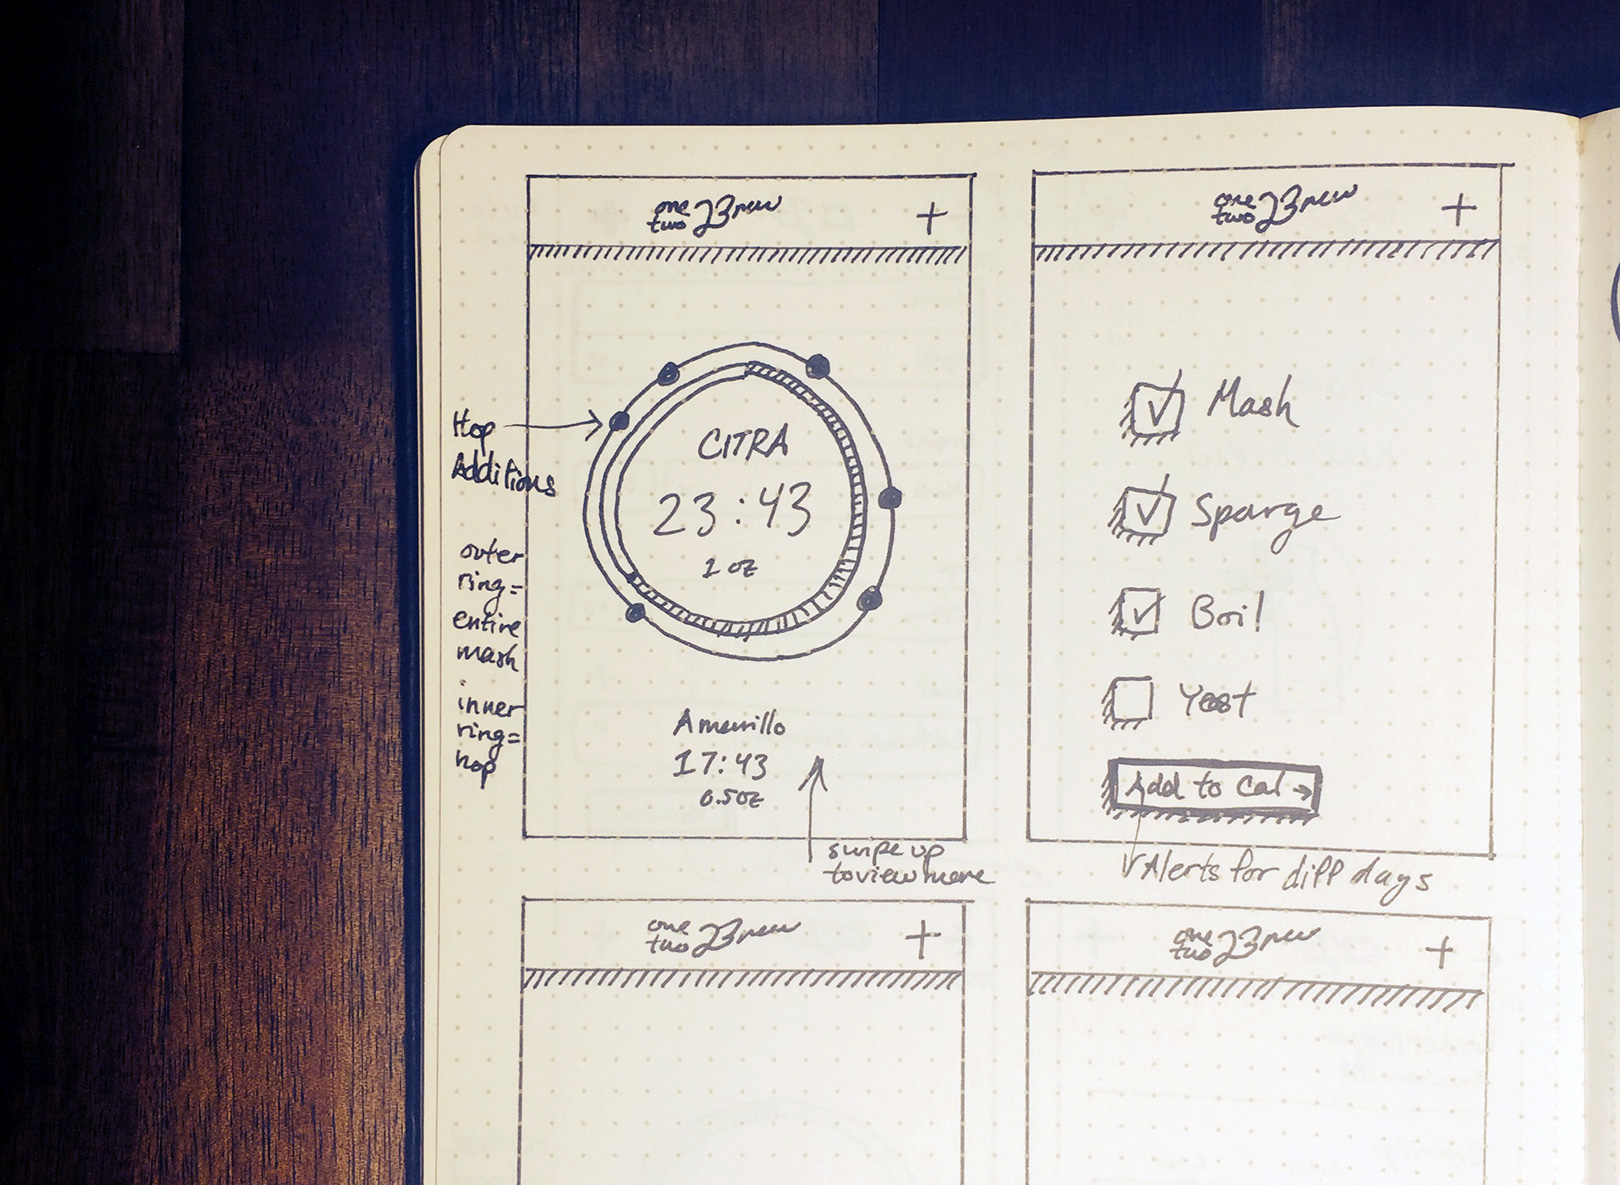 one
two Brew +
Hop
Additions
CITRA
23:43
1 oz
outer
ring=
entire
mash
inner
ring=
hop
Amarillo
17:43
0.5oz
swipe up
to view more
one
two Brew +
Mash
Sparge
Boil
Yeast
Add to Cal →
Alerts for diff days
one
two Brew +
one
two Brew +